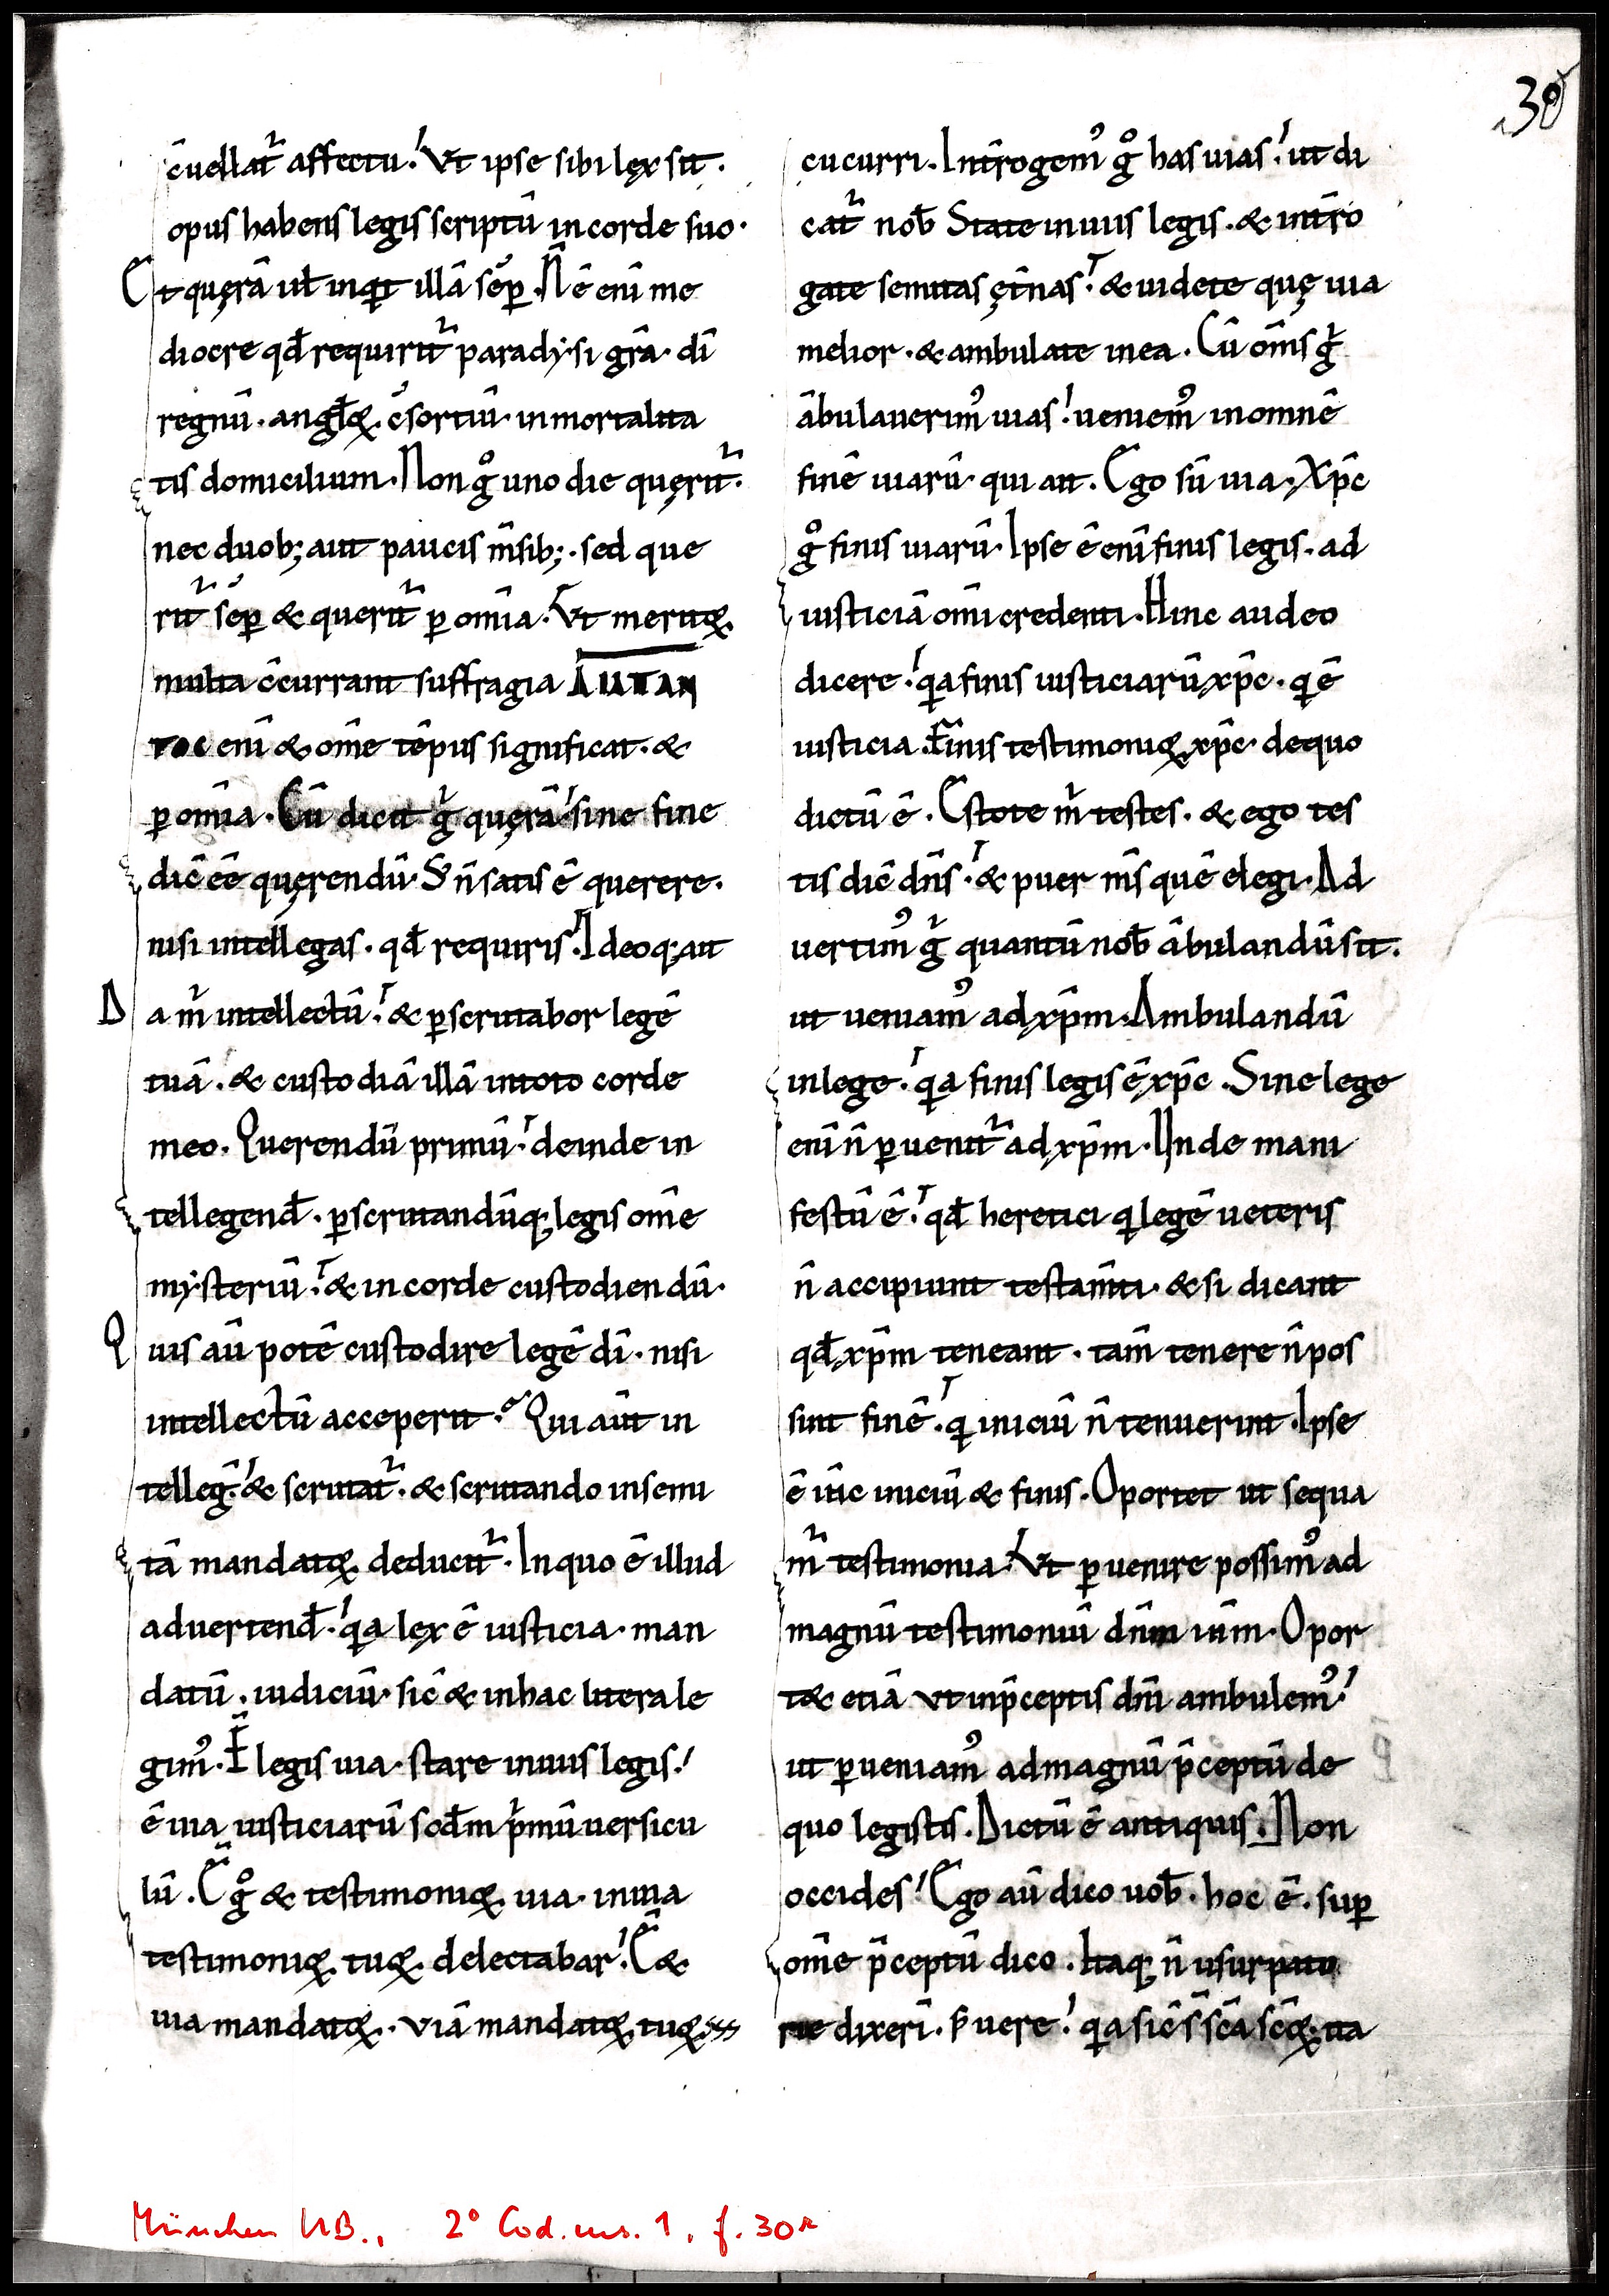 30
c̄uellat᷑ affectu. Vt ipse sibi lex sit.
opus habens legis scriptū in corde suo.
Et quęrā ut inqt illā sēp. N̄ ē enī me
diocre qđ requirit᷑ paradysi grā. dī
regnū. anglꝝ c̄sortiū. inmortalita
tis domicilium. Non gͦ uno die quęrit᷑.
nec duob; aut paucis m̄sib;. sed que
rit᷑ sēp & querit᷑ ꝑ om̄ia. Vt meritꝝ
multa c̄currant suffragia AUTAN
TOC enī & om̄e tēpus significat. &
ꝑ om̄ia. Cū dicit gͥ quęrā. sine fine
dic̄ ēē quęrendū. S; n̄ satis ē querere.
nisi intellegas. qđ requiris. Ideoq; ait
Da mͥ intellectū. & ꝑscrutabor legē
tuā. & custodiā illā intoto corde
meo. Querendū primū. deinde in
tellegenđ. ꝑscrutandūq; legis om̄e
mysteriū. & in corde custodiendū.
Quis aū potē custodire legē dī. nisi
intellectū acceperit. Qui aūt in
telleḡ. & scrutat᷑. & scrutando insemi
tā mandatꝝ deducit᷑. In quo ē illud
advertenđ. qa lex ē iusticia. man
datū. iudiciū. sic̄ & inhac litera le
gimꝰ. Ē legis uia. stare inuiis legis.
ē uia iusticiarū scđm pͥmū uersicu
lū. Ē gͦ & testimoniꝝ uia. inuia
testimoniꝝ tuꝝ delectabar. Ē &
uia mandatꝝ. viā mandatꝝ tuꝝ
cucurri. Int̄rogemꝰ gͦ has uias. ut di
cat᷑ nob̄ State inuiis legis. & int̄ro
gate semitas ęt̄nas. & uidete quę uia
melior. & ambulate inea. Cū om̄is gͥ
ābulauerimꝰ uias. ueniemꝰ inomnē
finē uiarū. qui ait. Ego sū uia. Xp̄c
gͦ finis uiarū. Ipse ē enī finis legis. ad
iusticiā om̄i credenti. Hinc audeo
dicere. qa finis iusticiarū xp̄c. q ē
iusticia. Finis testimoniꝝ xp̄c. dequo
dictū ē. Estote mͥ testes. & ego tes
tis dic̄ dn̄s. & puer m̄s quē elegi. Ad
uertimꝰ gͥ quantū nob̄ ābulandū sit.
ut ueniamꝰ ad xp̄m. Ambulandū
inlege. qa finis legis ē xp̄c. Sine lege
enī n̄ ꝑuenit᷑ ad xp̄m. Unde mani
festū ē. qđ heretici q legē ueteris
n̄ accipiunt testam̄ti. & si dicant
qđ xp̄m teneant. tam̄ tenere n̄ pos
sint finē. q iniciū n̄ tenuerint. Ipse
ē itīc iniciū & finis. Oportet ut sequa
m᷑ testimonia. Vt ꝑuenire possimꝰ ad
magnū testimoniū dn̄m iūm. Opor
t& etiā vt inp̄ceptis dn̄i ambulemꝰ.
ut ꝑueniamꝰ admagnū p̄ceptū de
quo legistis. Dictū ē antiquis. Non
occides. Ego aū dico uob̄. hoc ē. suꝑ
om̄e p̄ceptū dico. Itaq; n̄ usurpato
rie dixerī. s; uere. qa sic̄ s̄ sc̄a sc̄ꝝ. ita
München UB., 2° Cod. ms. 1, f. 30r